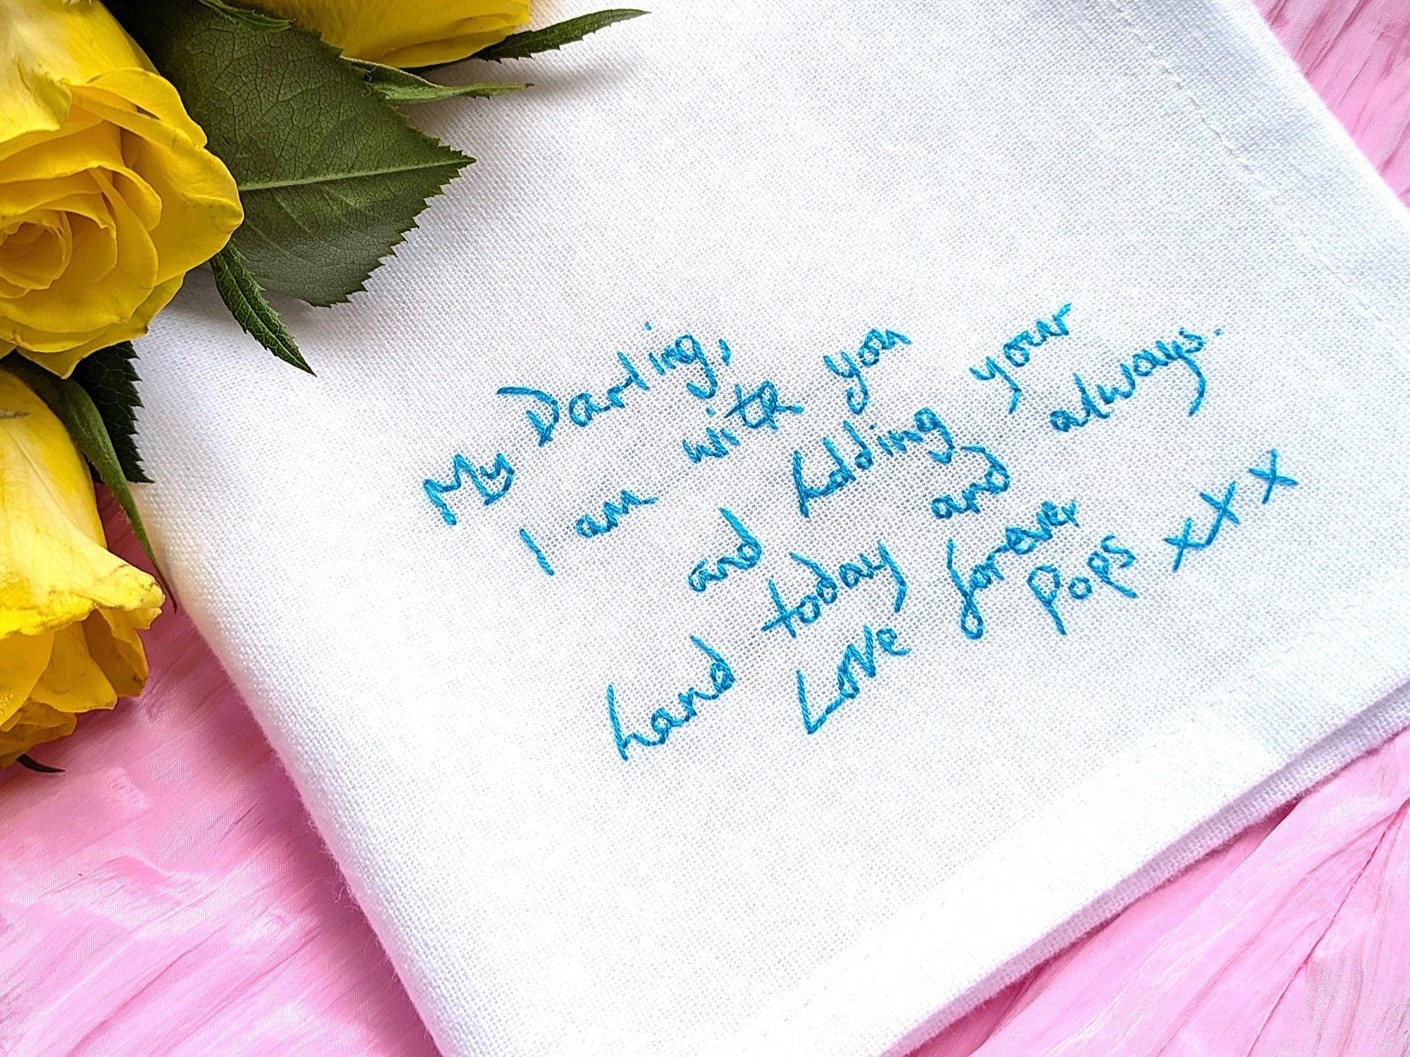 My Darling,
I am with you
and holding your
hand today and always.
Love forever
Pops xxx